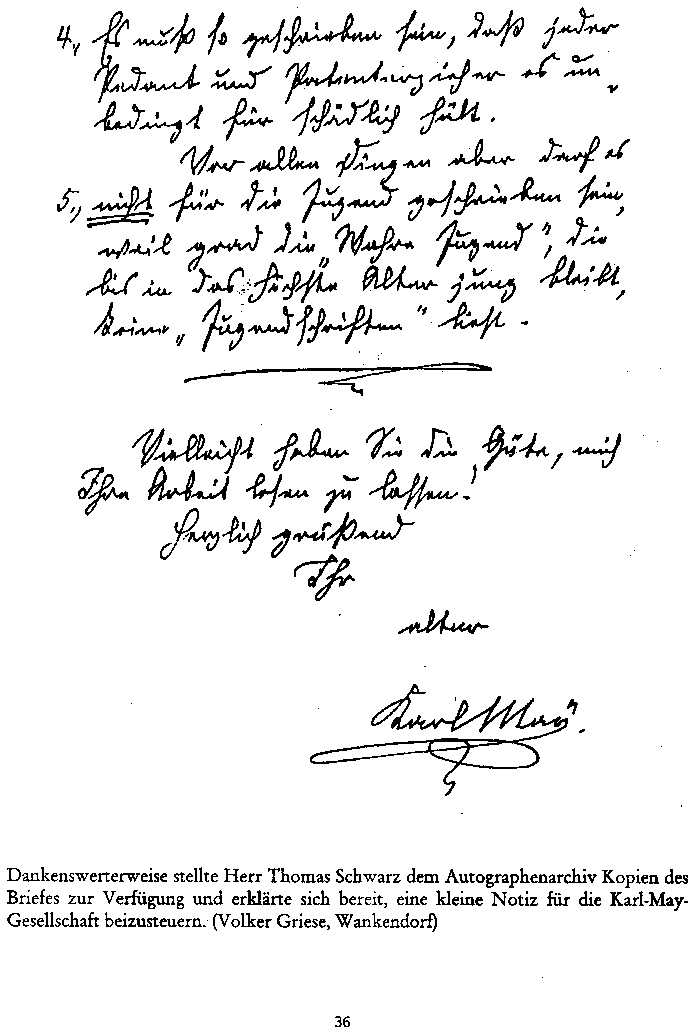 4., Es muß so geschrieben sein, daß jeder
Pedant und Patenterzieher es un-
bedingt für schädlich hält.
Vor allen Dingen aber darf es
5., nicht für die Jugend geschrieben sein,
weil grad die „Wahre Jugend", die
bis in das höchste Alter jung bleibt,
keine „Jugendschriften" liest.
Vielleicht haben Sie die Güte, mich
Ihre Arbeit lesen zu lassen!
Herzlich grüßend
Ihr
alter
Karl May.
Dankenswerterweise stellte Herr Thomas Schwarz dem Autographenarchiv Kopien des
Briefes zur Verfügung und erklärte sich bereit, eine kleine Notiz für die Karl-May-
Gesellschaft beizusteuern. (Volker Griese, Wankendorf)
36